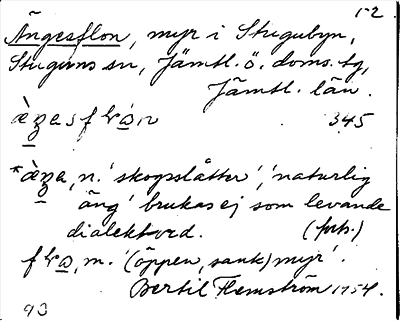 12.
Ängesflon, myr i Stugubyn,
Stuguns sn, Jämtl. ö. doms. tg,
Jämtl. län.
345
*
n. 'skogsslåtter', 'naturlig
äng' brukas ej som levande
dialektord.
m. '(öppen, sank) myr'.
Bertil Flemström 1954.
93